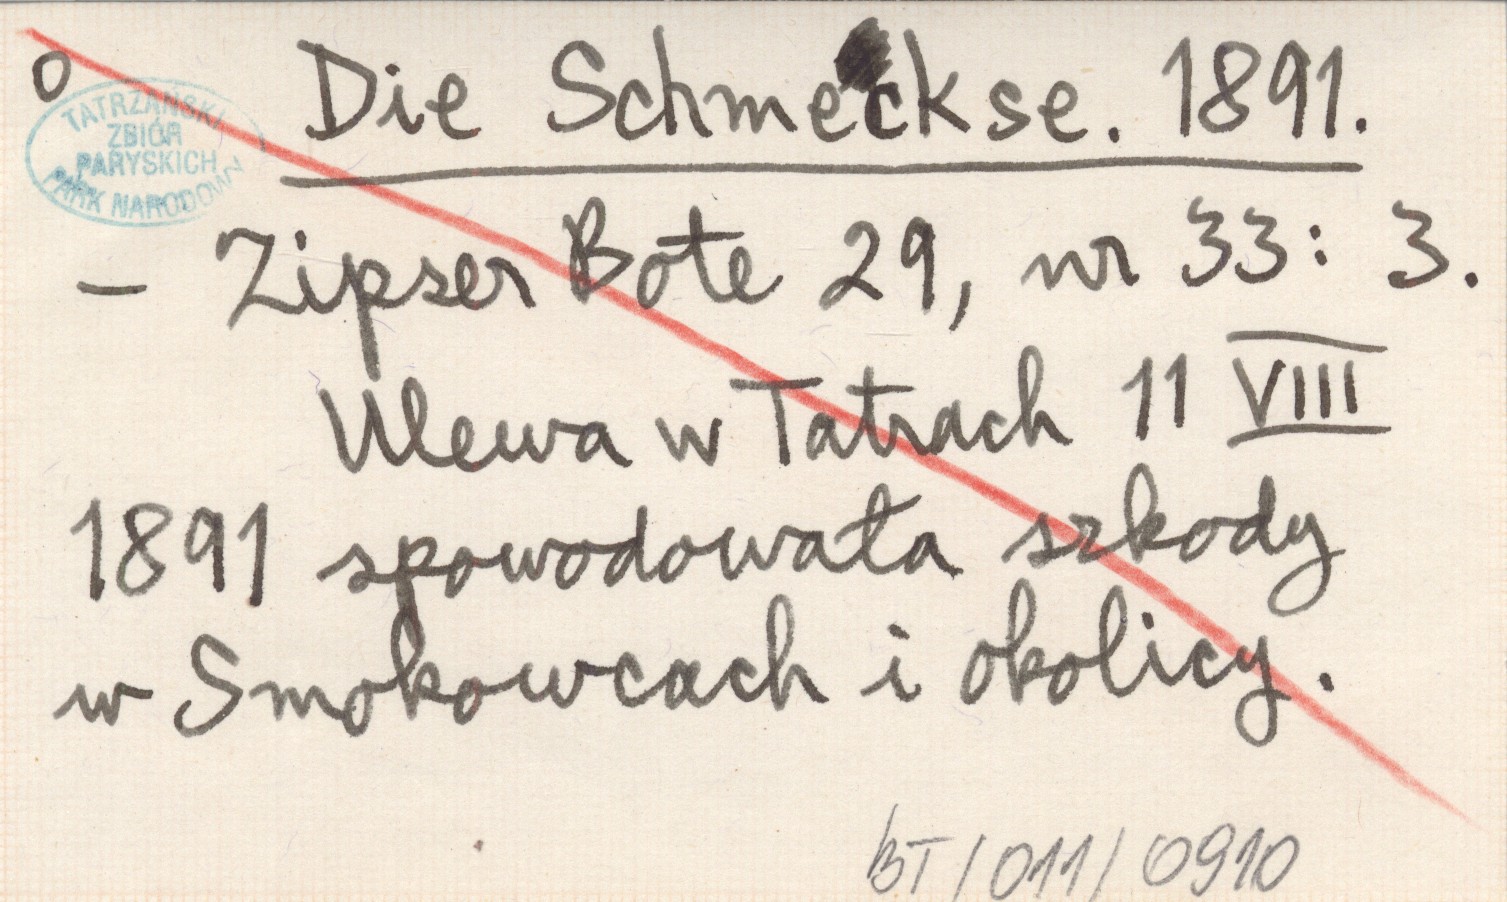 o
TATRZAŃSKI
ZBIÓR
PARYSKICH
PARK NARODOWY
Die Schmeckse. 1891.
– Zipser Bote 29, nr 33: 3.
Ulewa w Tatrach 11 VIII
1891 spowodowała szkody
w Smokowcach i okolicy.
BT/011/0910